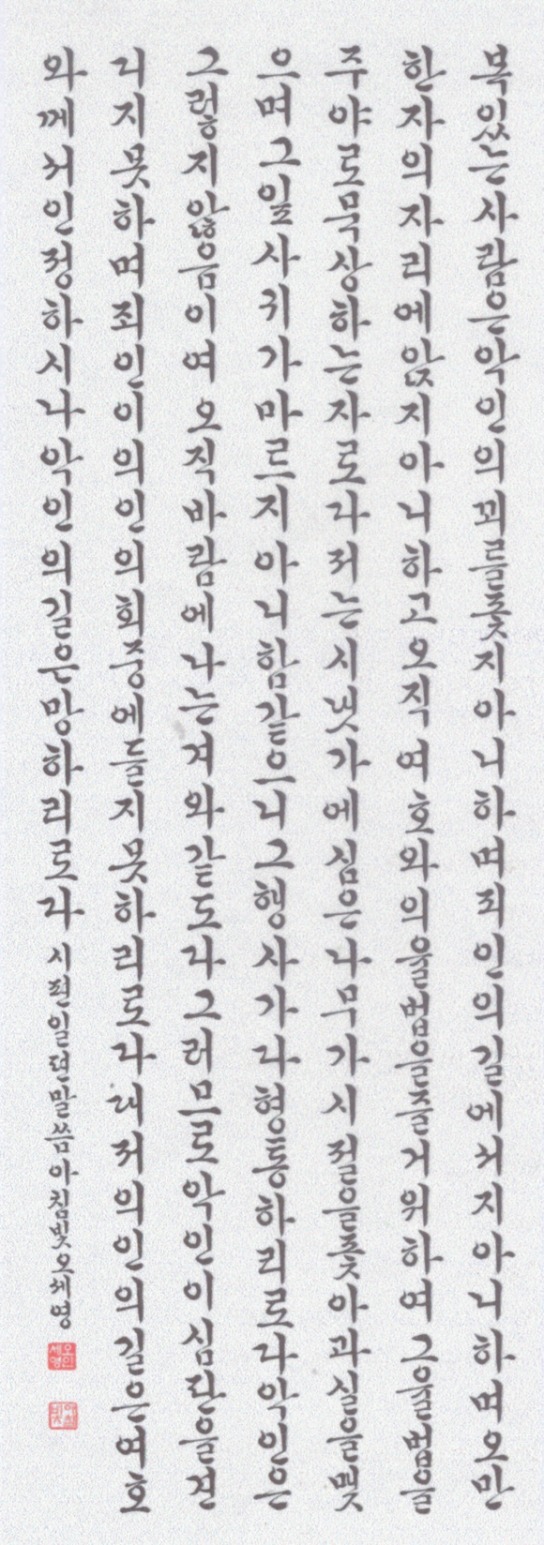 복있는사람은악인의꾀를좇지아니하며죄인의길에서지아니하며오만
한자의자리에앉지아니하고오직여호와의율법을즐거워하여그율법을
주야로묵상하는자로라저는시냇가에심은나무가시절을좇아과실을맺
으며그잎사귀가마르지아니함같으니그행사가다형통하리로다악인은
그렇지않음이여오직바람에나는겨와같도다그러므로악인이심판을견
디지못하며죄인이의인의회중에들지못하리로다대저의인의길은여호
와께서인정하시나악인의길은망하리로다 시편일편말씀아침빛오세영
오인세영
아침빛